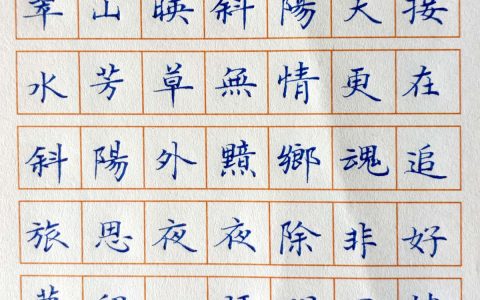 翠山暎斜陽天接
水芳草無情更在
斜陽外黯鄉魂追
旅思夜夜除非好